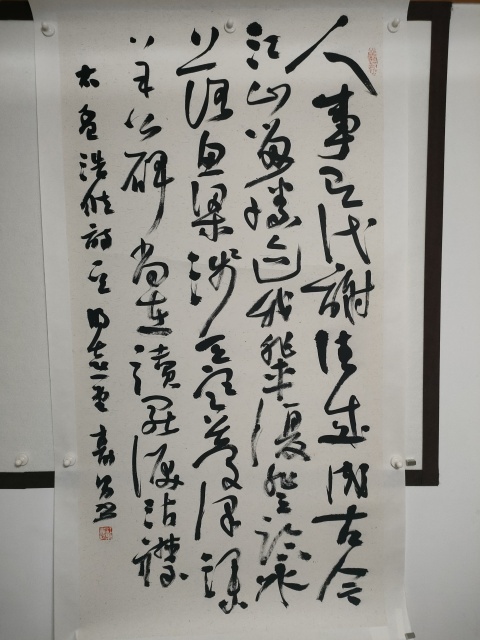 人事有代謝往來成古今
江山留勝迹我輩復登臨水
落魚梁淺天寒夢澤深
羊公碑尚在讀罷淚沾襟
右孟浩然詩